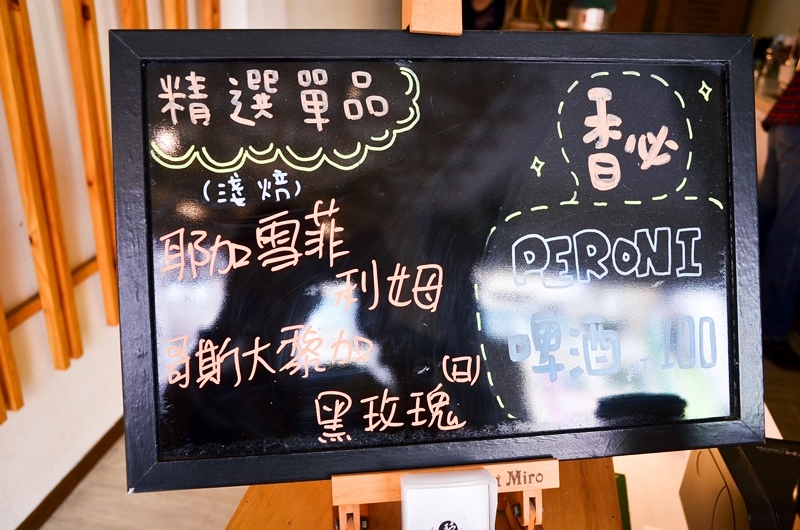 精選單品
(淺焙)
耶加雪菲
利姆
哥斯大黎加
(日)
黑玫瑰
香必
PERONI
啤酒 100
t Miro